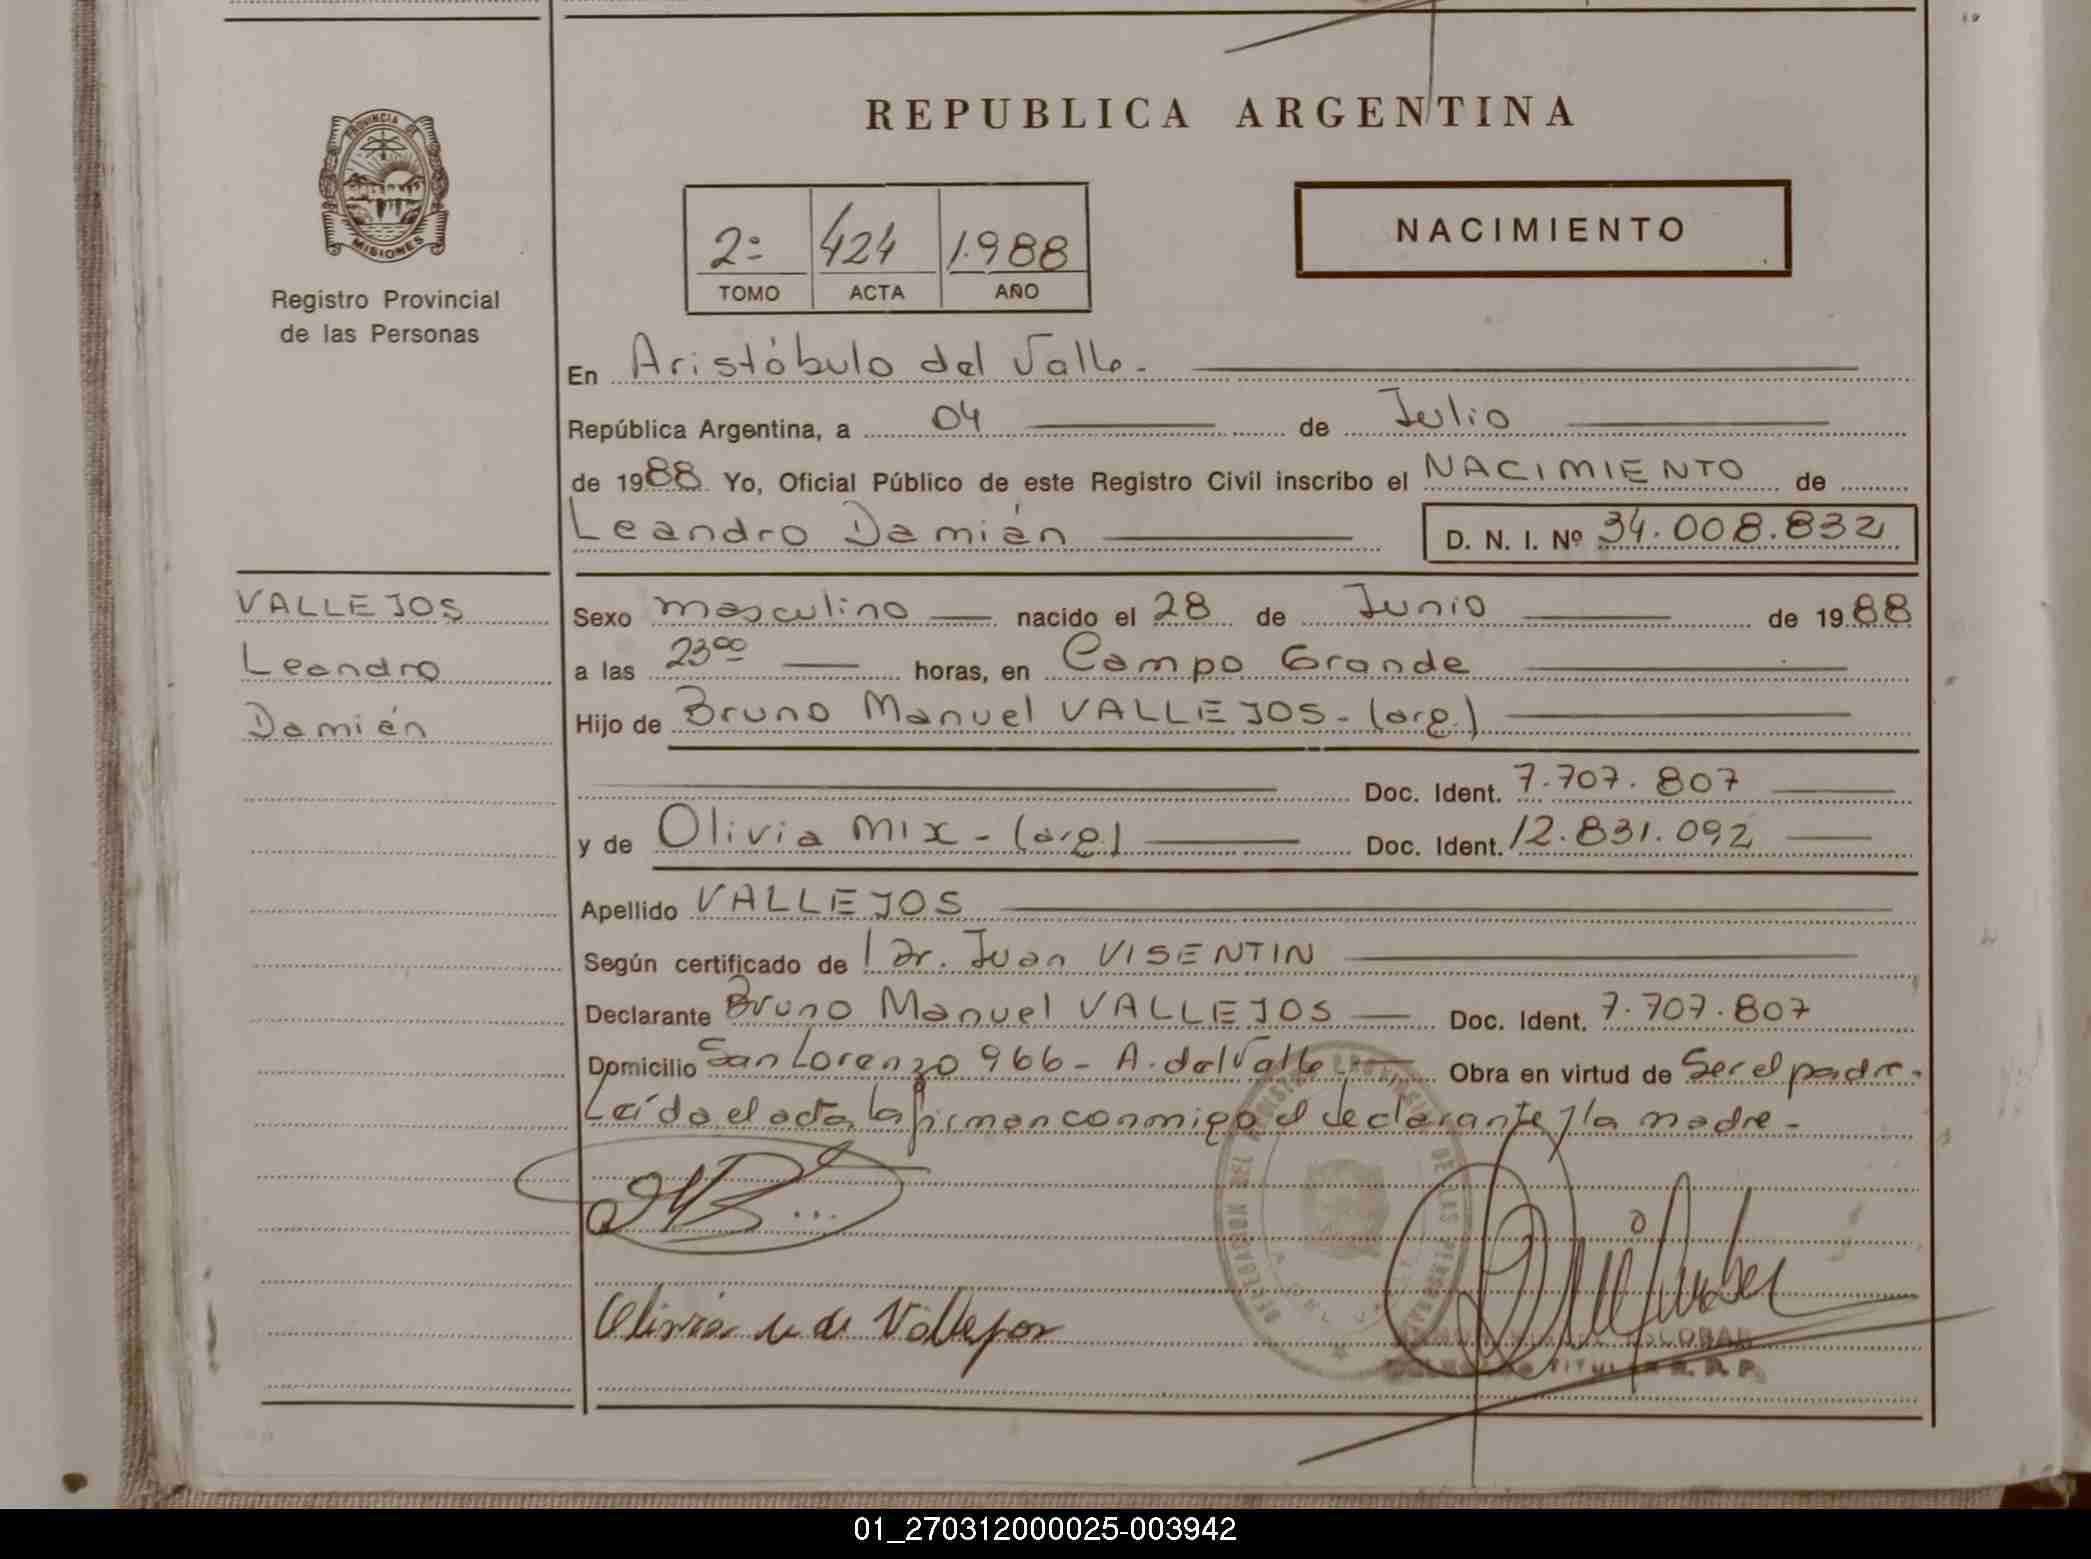 REPUBLICA ARGENTINA
PROVINCIA DE
MISIONES
Registro Provincial
de las Personas
2º 424 1.988
TOMO ACTA AÑO
NACIMIENTO
En Aristóbulo del Valle.
República Argentina, a 04 de Julio
de 1988 Yo, Oficial Público de este Registro Civil inscribo el NACIMIENTO de
Leandro Damián D. N. I. Nº 34.008.832
VALLEJOS
Leandro
Damián
Sexo masculino nacido el 28 de Junio de 1988
a las 23⁰⁰ horas, en Campo Grande
Hijo de Bruno Manuel VALLEJOS - (arg.)
Doc. Ident. 7.707.807
y de Olivia MIX - (arg.) Doc. Ident. 12.831.092
Apellido VALLEJOS
Según certificado de l Dr. Juan VISENTIN
Declarante Bruno Manuel VALLEJOS Doc. Ident. 7.707.807
Domicilio San Lorenzo 966 - A. del Valle Obra en virtud de Ser el padre.
Leída el acta, la firman conmigo el declarante y la madre -
DELEGACION DEL REGISTRO PROVINCIAL DE LAS PERSONAS
Olivia de Vallejos
ESCOBAR
TITULAR R. P.
01_270312000025-003942